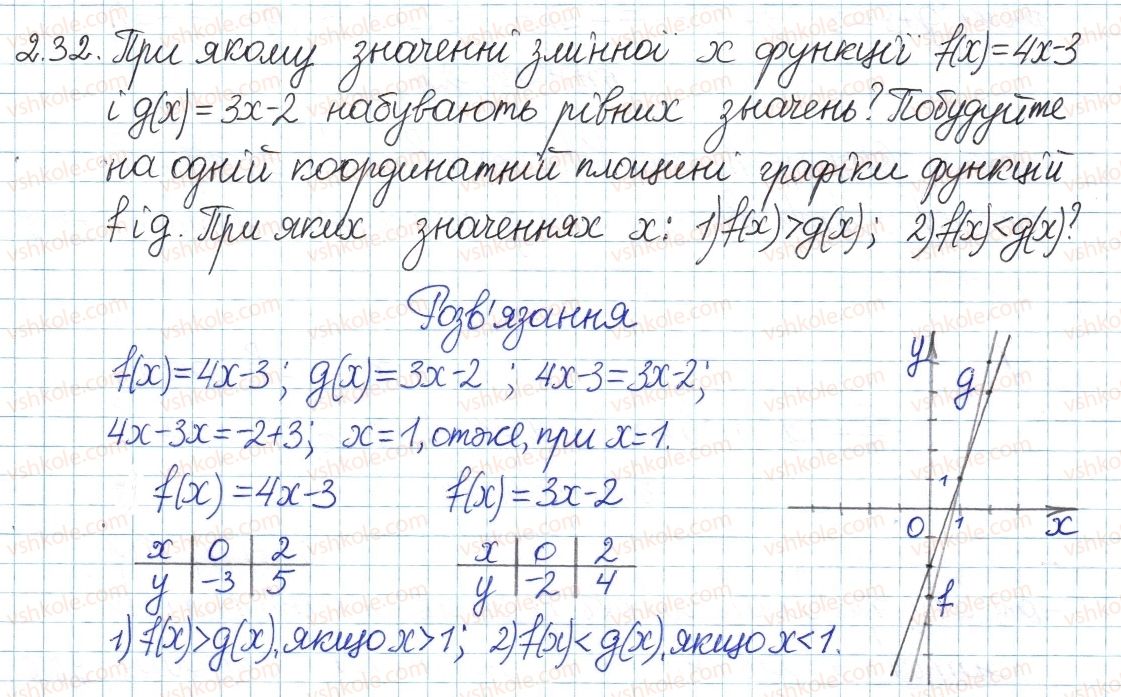 2.32. При якому значенні змінної x функції f(x)=4x-3
і g(x)=3x-2 набувають рівних значень? Побудуйте
на одній координатній площині графіки функцій
f і g. При яких значеннях x: 1) f(x)>g(x); 2) f(x)<g(x)?
Розв'язання
f(x)=4x-3; g(x)=3x-2; 4x-3=3x-2;
4x-3x=-2+3; x=1, отже, при x=1.
f(x)=4x-3 f(x)=3x-2
x 0 2 x 0 2
y -3 5 y -2 4
1) f(x)>g(x), якщо x>1; 2) f(x)<g(x), якщо x<1.
y
g
1
0 1 x
f
vshkole.com